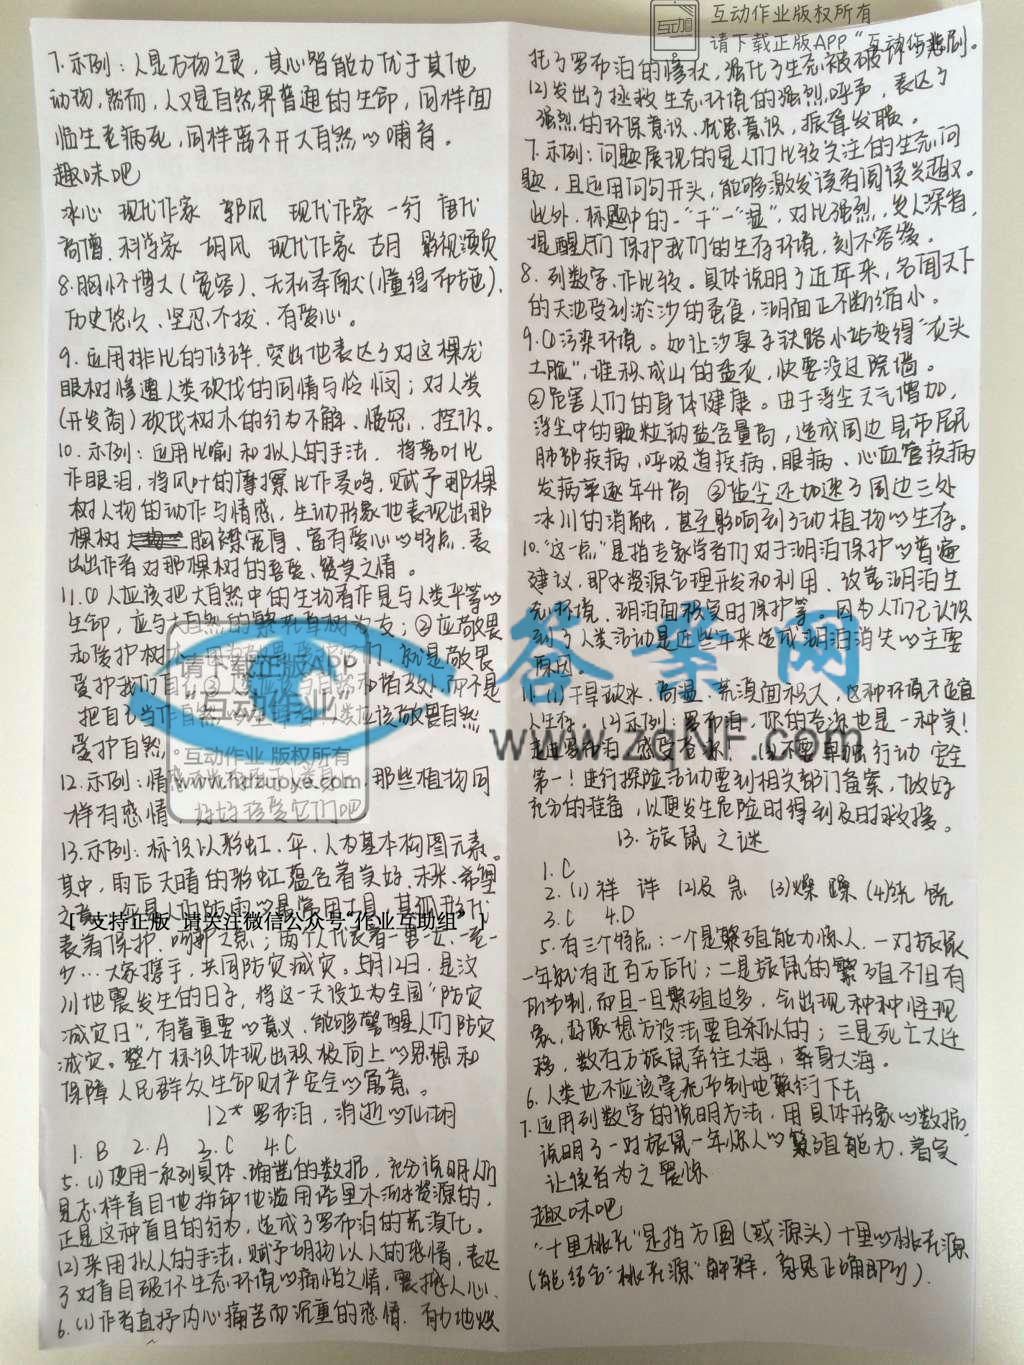 7.示例：人是万物之灵，其心智能力优于其他
动物，然而，人又是自然界普通的生命，同样面
临生老病死，同样离不开大自然的哺育。
趣味吧
冰心 现代作家 郭风 现代作家 一行 唐代
高僧、科学家 胡风 现代作家 古月 影视演员
8.胸怀博大(宽容)、无私奉献(懂得布施)、
历史悠久、坚忍不拔、有爱心。
9.运用排比的修辞，突出地表达了对这棵龙
眼树惨遭人类砍伐的同情与怜悯；对人类
(开发商)砍伐树木的行为不解、愤怒、控诉。
10.示例：运用比喻和拟人的手法，将落叶比
作眼泪，将风叶的摩擦比作哀鸣，赋予那棵
树人物的动作与情感，生动形象地表现出那
棵树胸襟宽厚、富有爱心的特点，表
达出作者对那棵树的喜爱、赞美之情。
11.①人应该把大自然中的生物看作是与人类平等的
生命，应与大自然的繁花草树为友；②应敬畏
和爱护树木
爱护我们自
把自己当作自然 人类应该敬畏自然
爱护自然。
12.示例：情 那些植物同
样有感情 好好珍爱它们吧
13.示例：标识以彩虹、伞、人为基本构图元素。
其中，雨后天晴的彩虹蕴含着美好、未来、希望
之意 伞是人们防雨的最常用工具，其弧形代
表着保护、呵护之意；两个人代表着一男一女、一老一
少…大家携手，共同防灾减灾。5月12日，是汶
川地震发生的日子，将这一天设立为全国“防灾
减灾日”，有着重要的意义，能够警醒人们防灾
减灾。整个标识体现出积极向上的思想和
保障人民群众生命财产安全的寓意。
12*罗布泊，消逝的仙湖
1.B 2.A 3.C 4.C
5.(1)使用一系列具体、确凿的数据，充分说明人们
是怎样盲目地抽卸地滥用塔里木河水资源的，
正是这种盲目的行为，造成了罗布泊的荒漠化。
(2)采用拟人的手法，赋予胡杨以人的感情，表达
了对盲目破坏生态环境的痛惜之情，震撼人心。
6.(1)作者直抒内心痛苦而沉重的感情，有力地烘
托了罗布泊的惨状，强化了生态被破坏的悲剧。
(2)发出了拯救生态环境的强烈呼声，表达了
强烈的环保意识、忧患意识，振聋发聩。
7.示例：问题展现的是人们比较关注的生态问
题，且运用问句开头，能够激发读者阅读兴趣。
此外，标题中的一“干”一“湿”，对比强烈，发人深省，
提醒人们保护我们的生存环境，刻不容缓。
8.列数字、作比较。具体说明了近年来，名闻天下
的天池受到淤沙的蚕食，湖面正不断缩小。
9.①污染环境。如让沙泉子铁路小站变得“灰头
土脸”，堆积成山的盐灰，快要没过院墙。
②危害人们的身体健康。由于浮尘天气增加，
浮尘中的颗粒钠盐含量高，造成周边县市居民
肺部疾病、呼吸道疾病、眼病、心血管疾病
发病率逐年升高 ③盐尘还加速了周边三处
冰川的消融，甚至影响到了动植物的生存。
10.“这一点”是指专家学者们对于湖泊保护的普遍
建议，即水资源合理开发和利用、改善湖泊生
态环境、湖泊面积实时保护等。因为人们已认识
到了人类活动是近些年来造成湖泊消失的主要
原因。
11.(1)干旱缺水、高温、荒漠面积大，这种环境不适宜
人生存。(2)示例：罗布泊，你的苍凉也是一种美！
(3)不要单独行动 安全
第一！进行探险活动要到相关部门备案，做好
充分的准备，以便发生危险时得到及时救援。
13.旅鼠之谜
1.C
2.(1)祥 详 (2)及 急 (3)燥 躁 (4)
3.C 4.D
5.有三个特点：一个是繁殖能力惊人，一对旅鼠
一年就有近百万后代；二是旅鼠的繁殖不但有
所节制，而且一旦繁殖过多，会出现种种怪现
象，好像想方设法要自杀似的；三是死亡大迁
移，数百万旅鼠奔往大海，葬身大海。
6.人类也不应该毫无节制地繁衍下去
7.运用列数字的说明方法，用具体形象的数据，
说明了一对旅鼠一年惊人的繁殖能力，着实
让读者为之震惊
趣味吧
“十里桃花”是指方圆(或源头)十里的桃花源
(能结合“桃花源”解释，意思正确即可).
互动作业版权所有
请下载正版APP“互动作业”
请下载正版APP
“互动作业”
互动作业 版权所有
www.hdzuoye.com
答案网
www.zqNF.com
[ 支持正版 请关注微信公众号“作业互助组” ]